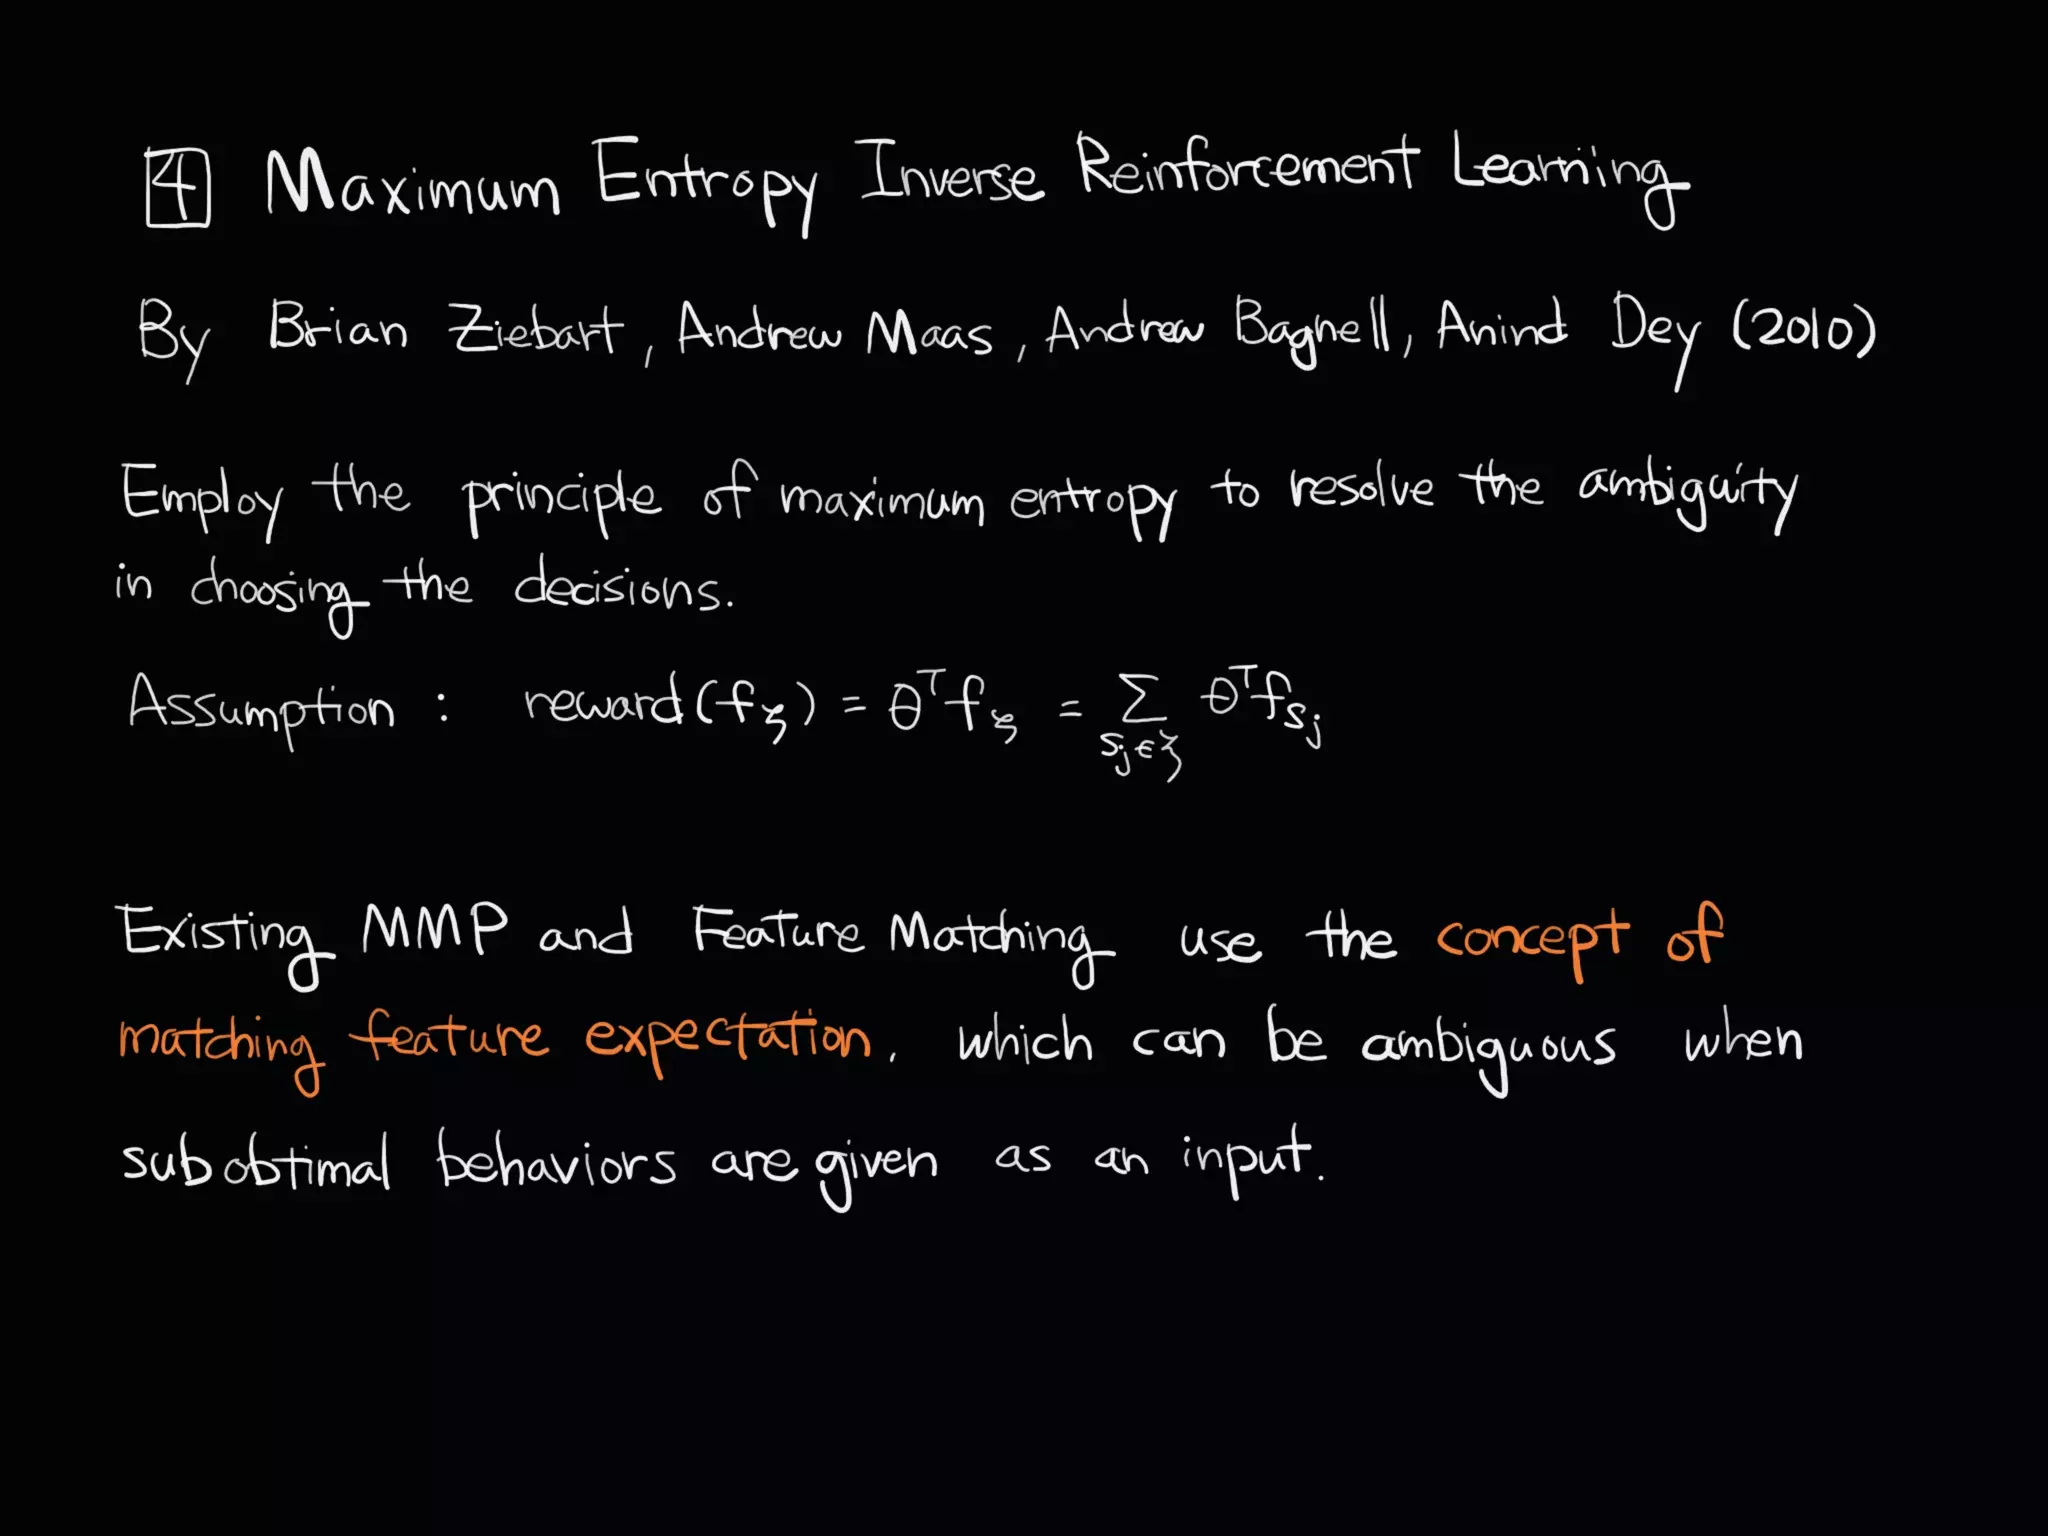 4 Maximum Entropy Inverse Reinforcement Learning
By Brian Ziebart, Andrew Maas, Andrew Bagnell, Anind Dey (2010)
Employ the principle of maximum entropy to resolve the ambiguity
in choosing the decisions.
Assumption : reward(f_ζ) = θ^T f_ζ = Σ_{s_j∈ζ} θ^T f_{s_j}
Existing MMP and Feature Matching use the concept of
matching feature expectation, which can be ambiguous when
subobtimal behaviors are given as an input.